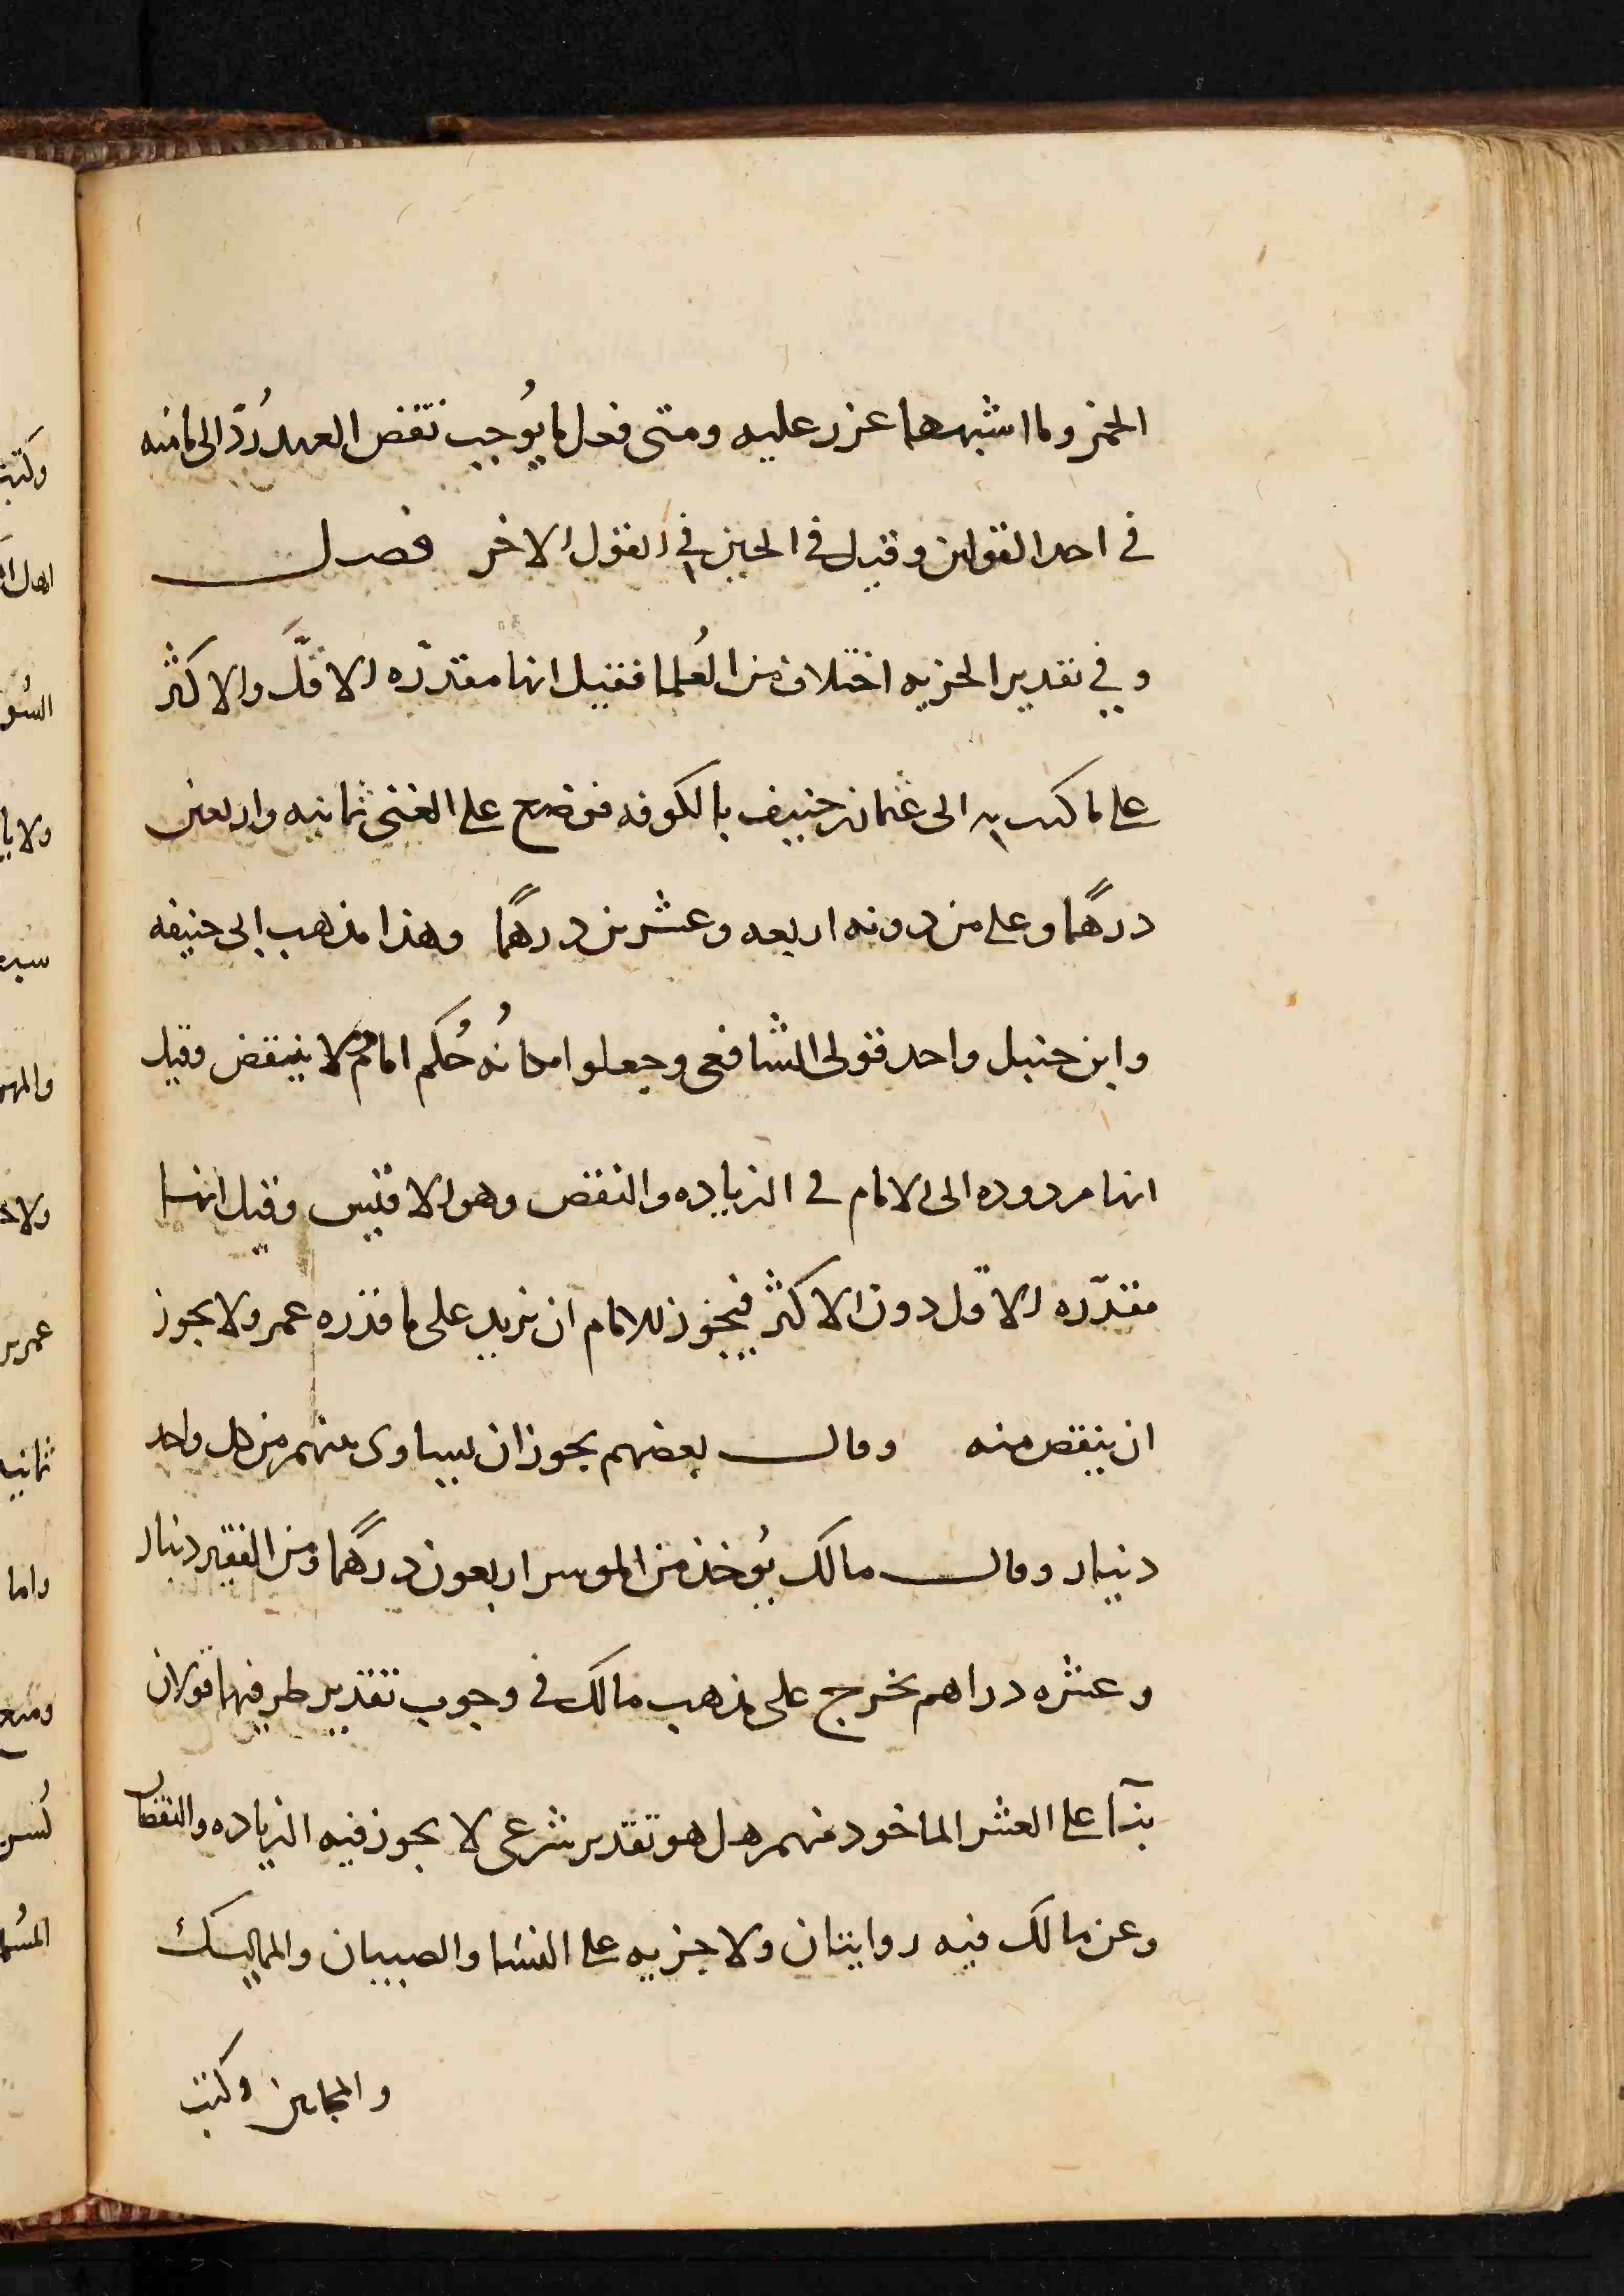 الخمر وما اشبههما عزر عليه ومتى فعل ما يُوجب نقض العهد رُدّ الى مامنه
في احد القولين وقتل في الحين في القول الاخر فصل
وفي تقدير الجزيه اختلاف من العُلما فقيل انها مقدّره الاقلَّ والاكثر
على ما كتب به الى عثمان بن حنيف بالكوفه فوضع على الغنى ثمانيه واربعين
درهمًا وعلى من دونه اربعه وعشرين درهمًا وهذا مذهب ابى حنيفه
وابن حنبل واحد قولى الشافعى وجعلوا امكانُه حُكم امام لا ينتقض وقيل
انها مردوده الى الامام في الزياده والنقص وهو الاقيس وقيل انها
مقدّره الاقل دون الاكثر فيجوز للامام ان يزيد على ما قدره عمر ولا يجوز
ان ينقص منه وقال بعضهم يجوز ان يساوى بينهم من كل واحد
دينار وقال مالك يُوخذ من الموسر اربعون درهمًا ومن الفقير دينار
وعشره دراهم يخرج على مذهب مالك في وجوب تقدير طرفيها قولان
بنآا على العشر الماخود منهم هل هو تقدير شرعى لا يجوز فيه الزياده والنقصان
وعن مالك فيه روايتان ولا جزيه على النسا والصبيان والمماليك
والمجانين وكتب